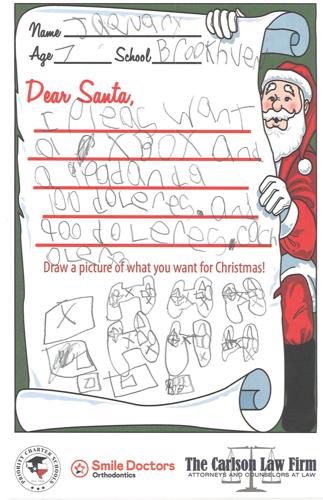 Name January
Age 7 School Brookhven
Dear Santa,
I pleas want
a XBox and
a
100 doleres. and
400 doleres. con
olers
Draw a picture of what you want for Christmas!
X
PRIORITY CHARTER SCHOOLS
Smile Doctors
Orthodontics
The Carlson Law Firm
ATTORNEYS AND COUNSELORS AT LAW